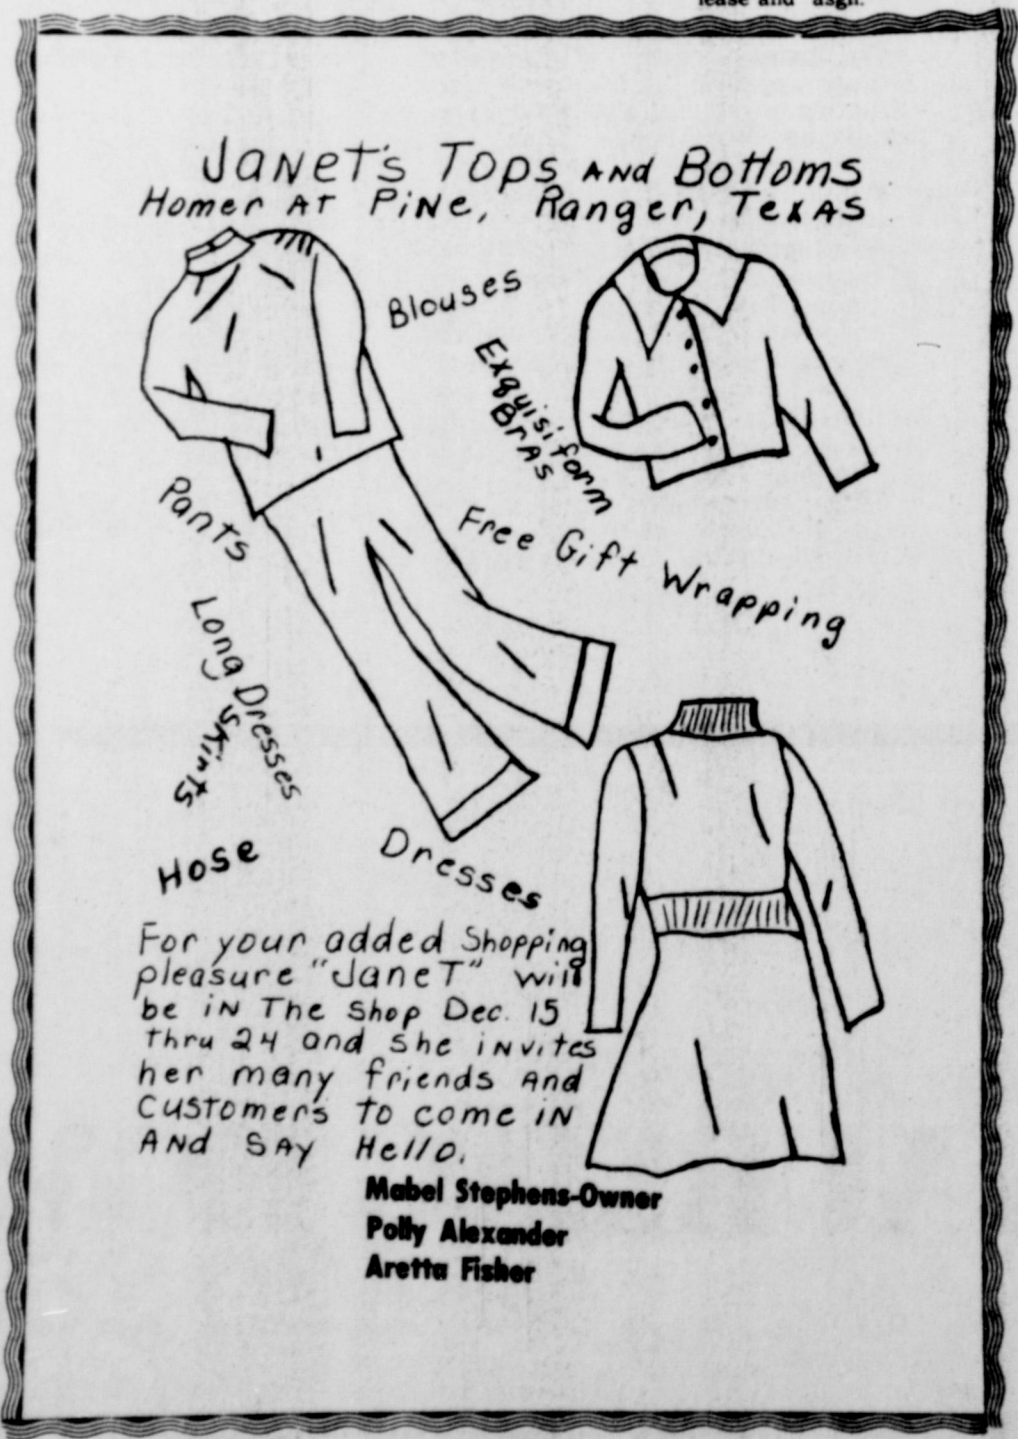 lease and asgn.
Janet's Tops and Bottoms
Homer at Pine, Ranger, Texas
Blouses
Exquisiform
Bras
Pants
Free Gift Wrapping
Long Dresses
Skirts
Hose
Dresses
For your added Shopping
pleasure "Janet" will
be in The Shop Dec. 15
thru 24 and she invites
her many friends and
customers to come in
and say Hello.
Mabel Stephens-Owner
Polly Alexander
Aretta Fisher